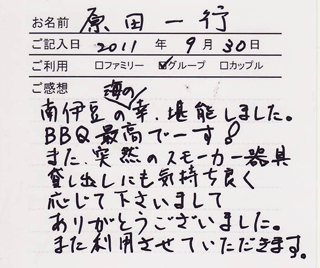 お名前 原田一行
ご記入日 2011 年 9 月 30 日
ご利用 □ファミリー ☑グループ □カップル
ご感想
南伊豆の海の幸、堪能しました。
BBQ最高でーす!
また、突然のスモーカー器具
貸し出しにも気持ち良く
応じて下さいまして
ありがとうございました。
また利用させていただきます。